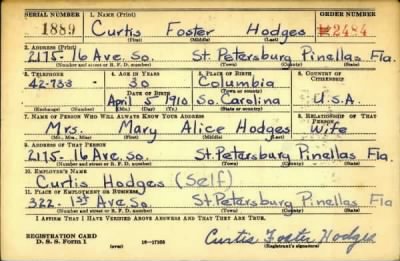 SERIAL NUMBER 1. NAME (Print) ORDER NUMBER
1889 Curtis Foster Hodges 2484
(First) (Middle) (Last)
2. ADDRESS (Print)
2175-16 Ave. So. St. Petersburg Pinellas Fla.
(Number and street or R. F. D. number) (Town) (County) (State)
3. TELEPHONE 4. AGE IN YEARS 5. PLACE OF BIRTH 6. COUNTRY OF CITIZENSHIP
42-753 30 Columbia
DATE OF BIRTH (Town or county)
April 5 1910 So. Carolina U.S.A.
(Exchange) (Number) (Mo.) (Day) (Yr.) (State or country)
7. NAME OF PERSON WHO WILL ALWAYS KNOW YOUR ADDRESS 8. RELATIONSHIP OF THAT PERSON
Mrs. Mary Alice Hodges Wife
(Mr., Mrs., Miss) (First) (Middle) (Last)
9. ADDRESS OF THAT PERSON
2175-16 Ave. So. St. Petersburg Pinellas Fla.
(Number and street or R. F. D. number) (Town) (County) (State)
10. EMPLOYER'S NAME
Curtis Hodges (Self)
11. PLACE OF EMPLOYMENT OR BUSINESS
322-1st Ave. So. St. Petersburg Pinellas Fla
(Number and street or R. F. D. number) (Town) (County) (State)
I AFFIRM THAT I HAVE VERIFIED ABOVE ANSWERS AND THAT THEY ARE TRUE.
REGISTRATION CARD
D. S. S. Form 1 (over) 16-17105 Curtis Foster Hodges
(Registrant's signature)